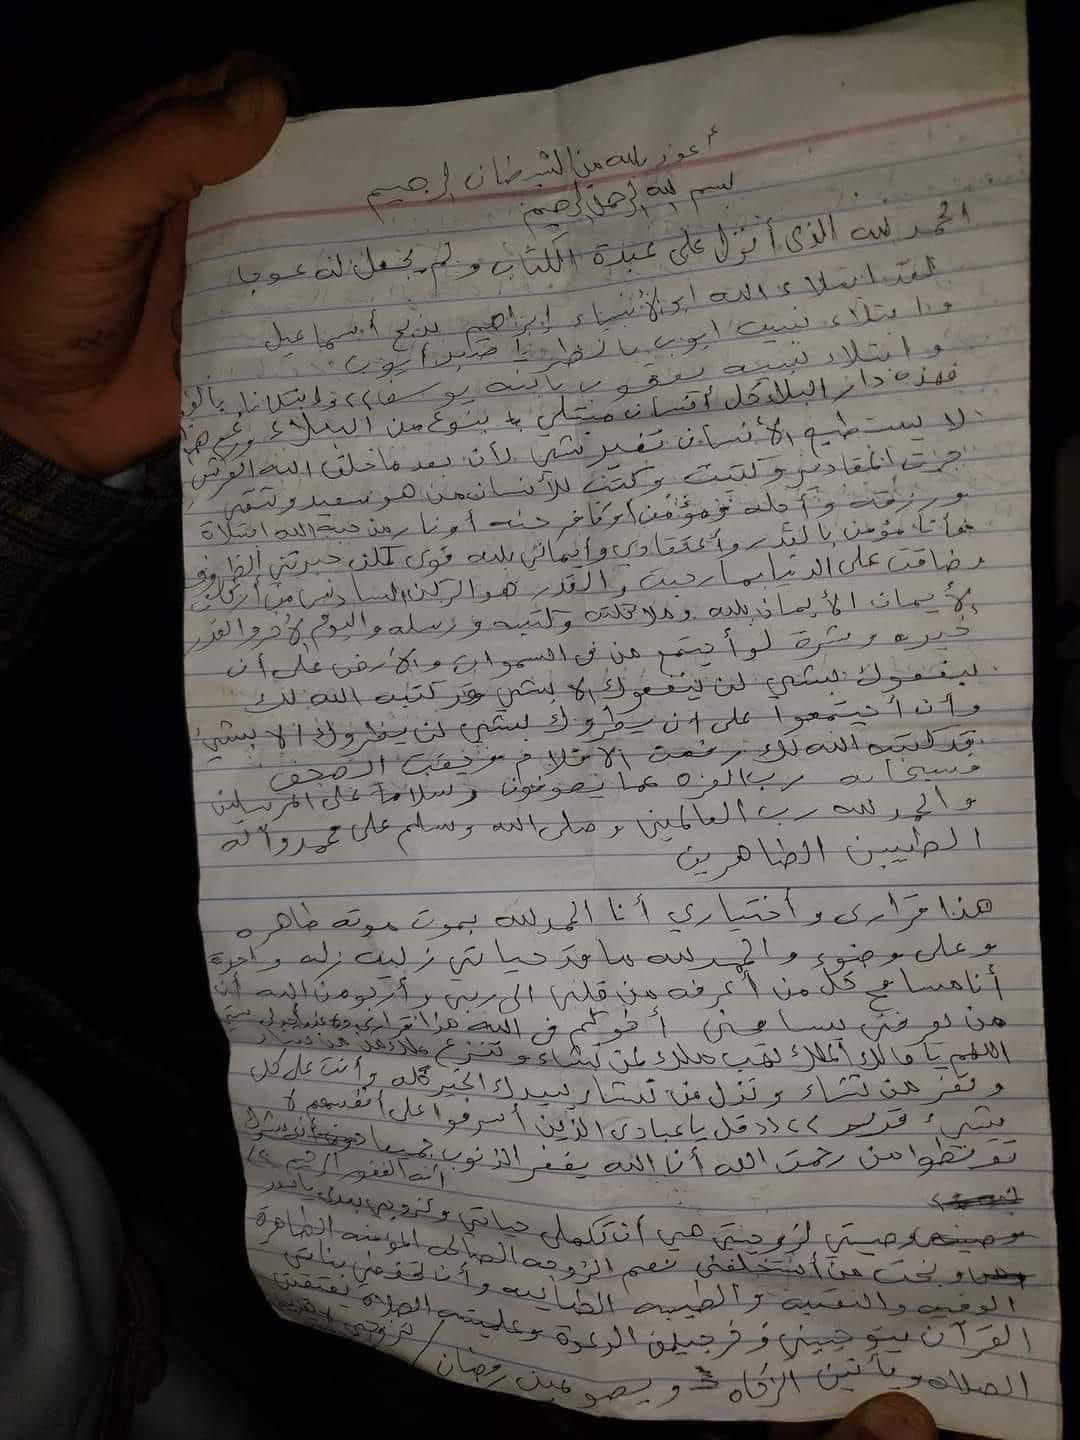 أعوذ بالله من الشيطان الرجيم
بسم الله الرحمن الرحيم
الحمد لله الذي أنزل على عبدة الكتاب ولم يجعل له عوجا
لقد ابتلاء الله ابو الأنبياء إبراهيم بذبح أسماعيل
وابتلاء نبيه ايوب بالظر يا صبر أيوب
وابتلاء نبيه يعقوب بابنه يوسف وابتلانا
فهذه دار البلاء كل أنسان مبتلي بنوع من البلاء
لا يستطيع الأنسان تغير شي لأن بعد ما خلق الله العرش
جرت المقادير وكتبت وكتب للأنسان من هو سعيد وشقي
ورزقه وأجله مؤمن أو كافر جنه أو نار
فأنا مؤمن بالقدر وأعتقادي وإيماني بلله قوي لكن جبرتني الظروف
وضاقت علي الدنيا بما رحبت والقدر هو الركن السادس من أركان
الأيمان الأيمان بلله وملائكته وكتبه ورسله واليوم الأخر والقدر
خيره وشرة لو أجتمع من في السموات والأرض على أن
ينفعوك بشي لن ينفعوك الا بشي قد كتبه الله لك
وأن أجتمعوا على ان يظروك بشي لن يظروك الا بشي
قد كتبه الله لك رفعت الاقلام وجفت الصحف
فسبحانه رب العزه عما يصفون وسلاما على المرسلين
والحمد لله رب العالمين وصلى الله وسلم على محمد وآله
الطيبين الطاهرين
هذا قراري وأختياري أنا الحمد لله بموت موته طاهره
وعلى وضوء والحمد لله ما قد حياتي زليت زله واحدة
أنا مسامح كل من أعرفه من قلبي الى ربي وأرجو من الله أن
من يعرفني يسامحني أخوكم في الله هذا قراري
اللهم يا مالك الملك تهب ملك لمن تشاء وتنزع
وتعز من تشاء وتذل من تشاء بيدك الخير كله وأنت على كل
شيء قدير قل يا عبادي الذين أسرفوا على أنفسهم لا
تقنطوا من رحمت الله أنا الله يغفر الذنوب جميعا
أنه الغفور الرحيم
وصيتي لزوجتي هي أن تكملي حياتي وتزوجي بعدي
نعم الزوجه الصالحه المؤمنه الطاهرة
الوفيه والنقيه والطيبه وأن تحفظي بناتي
القرآن الدعوة وعلميهن الصلاه
الصلاه ويأتين الزكاه ويصومين رمضان